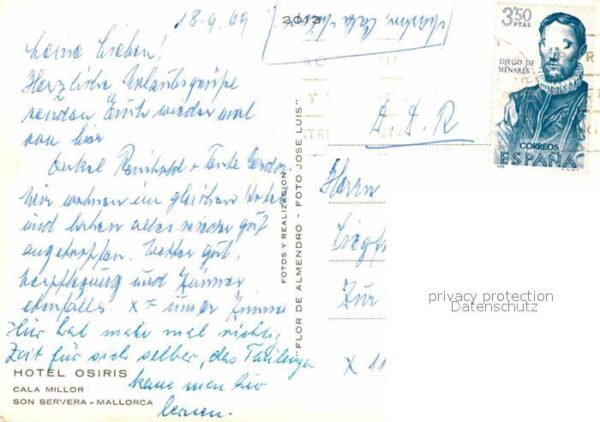 18.9.69
Meine Lieben!
Herzliche Urlaubsgrüße
senden Euch wieder mal
von hier
Onkel Reinhold + Tante Gerda.
Wir wohnen im gleichen Hotel
und haben alles wieder gut
angetroffen. Wetter gut,
Verpflegung und Zimmer
ebenfalls. x = unser Zimmer
Hier hat man mal richtig
Zeit für sich selber, das
kann man hier
lernen.
HOTEL OSIRIS
CALA MILLOR
SON SERVERA - MALLORCA
2013
FOTOS Y REALIZACION
"FLOR DE ALMENDRO - FOTO JOSE LUIS"
3'50
PTAS
DIEGO DE
HENARES
CORREOS
ESPAÑA
D. D. R
Herrn
Zur
X 11
privacy protection
Datenschutz